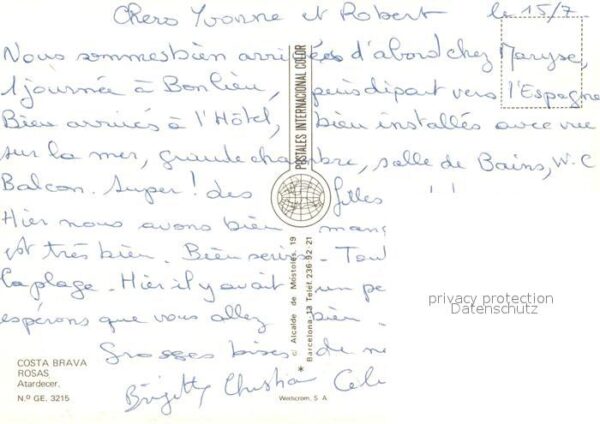 Chers Yvonne et Robert
le 15/7
Nous sommes bien arrivées d'abord chez Maryse,
1 journée à Bonlieu, puis départ vers l'Espagne
Bien arrivés à l'Hôtel, bien installés avec vue
sur la mer, grande chambre, salle de Bains, W.C
Balcon. Super! des filles !!
Hier nous avons bien mang
est très bien. Bien servis. Tout
la plage. Hier il y avait un pe
espérons que vous allez bien.
Grosses bises de
Brigitte Christian Celi
POSTALES INTERNACIONAL COLOR
c/ Alcalde de Móstoles, 19
* Barcelona-13 Telef. 236 92 21
COSTA BRAVA
ROSAS
Atardecer.
N.º GE. 3215
Wedscrom, S. A.
privacy protection
Datenschutz